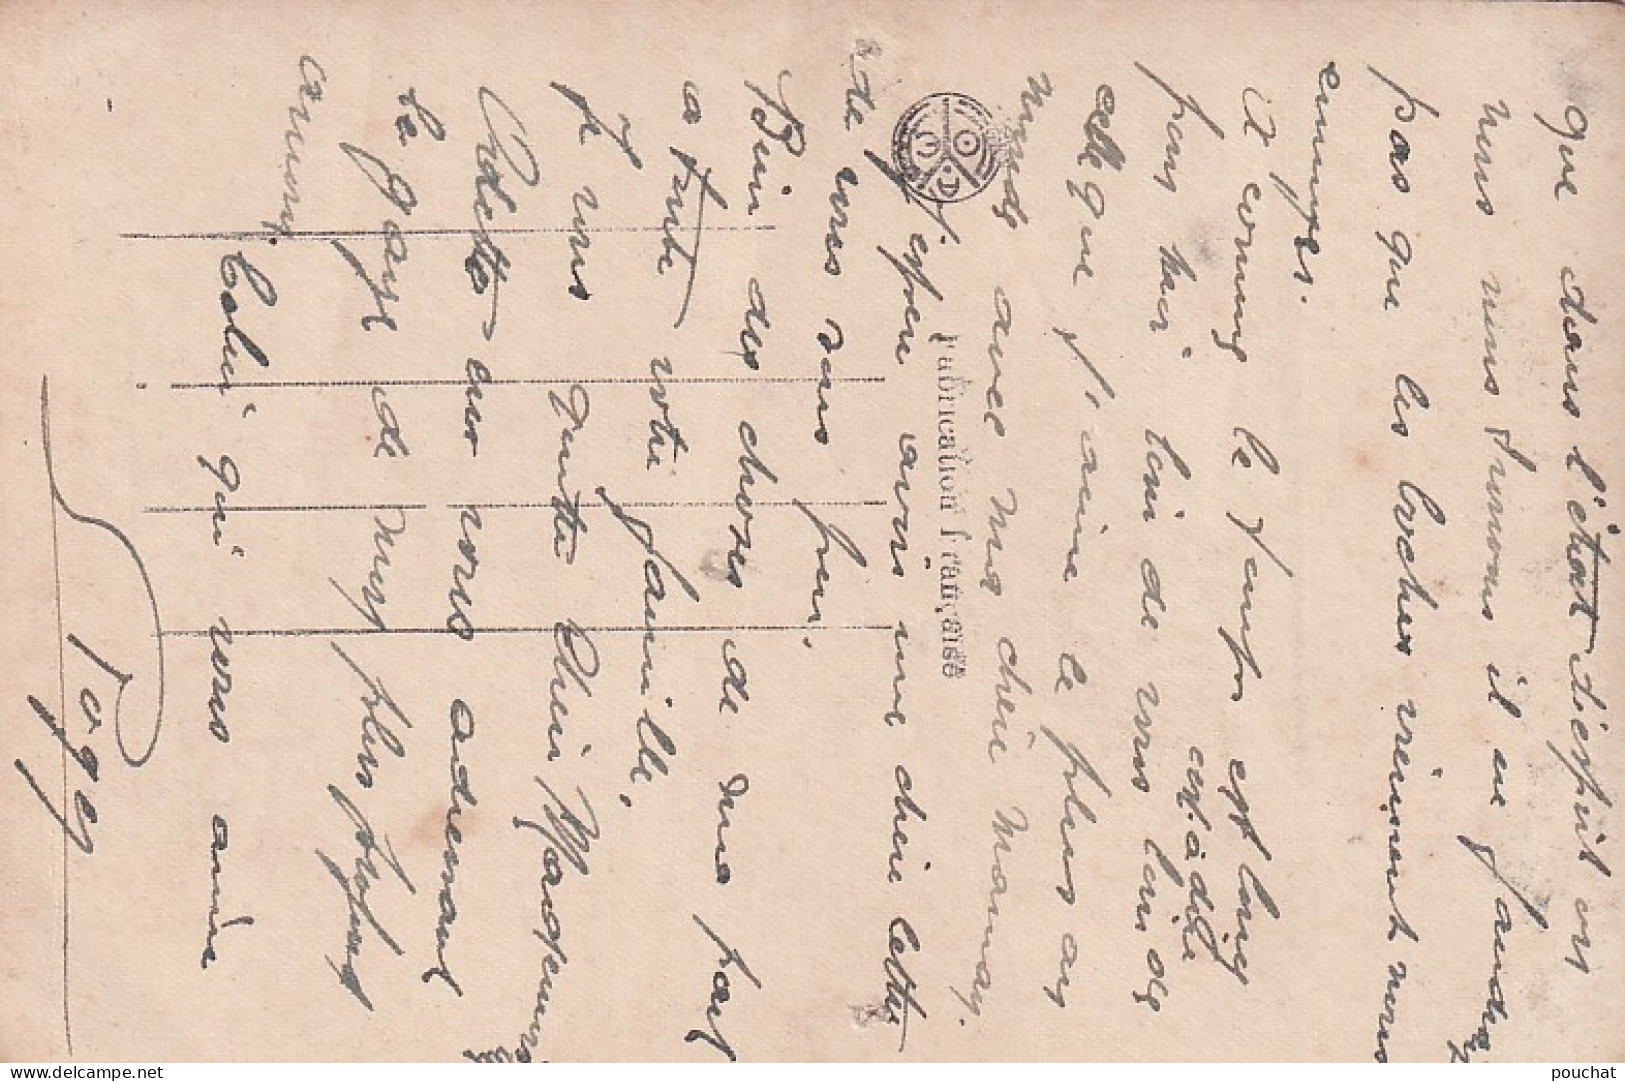 que dans l'état d'esprit où
nous nous trouvons il ne faudrait
pas que les boches viennent nous
ennuyer.
le temps est long
c.à.dire
pour moi loin de vous loin de
celle que j'aime le plus au
monde avec ma chère Maman.
J'espère avoir une chère lettre
de vous sous peu.
Bien des choses de ma part
a toute votre famille,
Je vous quitte Chère Mademoiselle
Odette en vous adressant
le gage de mon plus profond
amour.
Celui qui vous aime
Roger
Fabrication Française